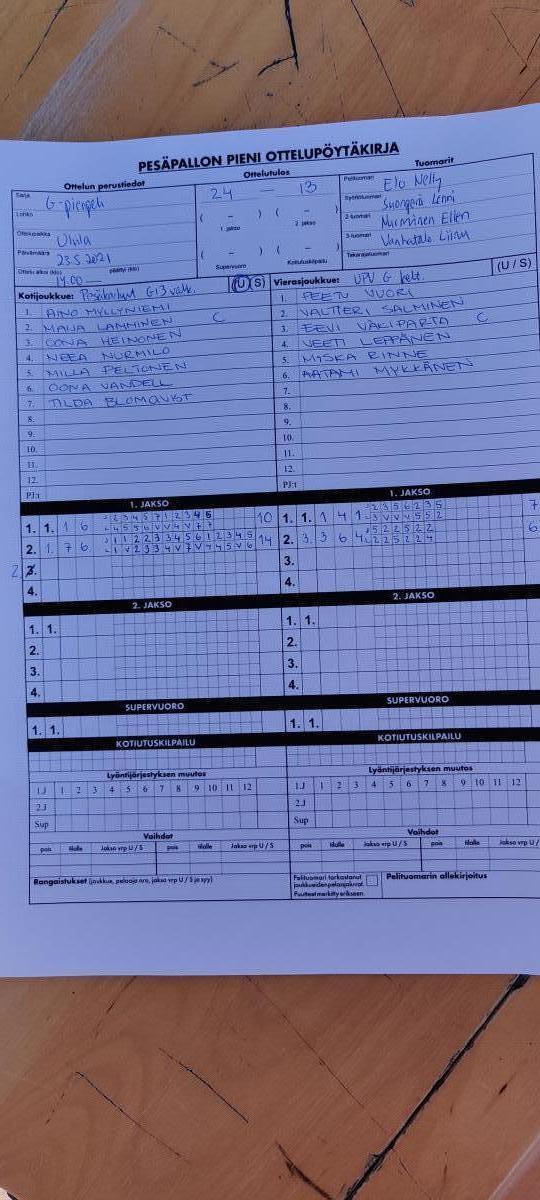 PESÄPALLON PIENI OTTELUPÖYTÄKIRJA
Ottelun perustiedot
Ottelutulos
Tuomarit
Sarja G-pienpeli
Lohko
Ottelupaikka Ulvila
Päivämäärä 23.5.2021
Ottelu alkoi (klo) 14.00 päättyi (klo)
24 – 13
( – ) ( – )
1. jakso 2. jakso
( – ) ( – )
Supervuoro Kotiutuskilpailu
Pelituomari Elo Nelly
Syöttötuomari Lenni
2-tuomari Nurminen Ellen
3-tuomari Vanhatalo
Takarajatuomari
Kotijoukkue: G13 valk. (U/S)
1. AINO MYLLYNIEMI
2. MAIJA LAMMINEN C
3. OONA HEINONEN
4. NEEA NURMILO
5. MILLA PELTONEN
6. OONA VANDELL
7. TILDA BLOMQVIST
8.
9.
10.
11.
12.
PJ:t
Vierasjoukkue: UPV G kelt. (U / S)
1. PEETU VUORI
2. VALTTERI SALMINEN
3. EEVI VÄKIPARTA C
4. VEETI LEPPÄNEN
5. MISKA RINNE
6. AATAMI MYKKÄNEN
7.
8.
9.
10.
11.
12.
PJ:t
1. JAKSO
1. 1. 1 6 10
2. 1. 7 6 14
2 3.
4.
1. JAKSO
1. 1. 1 4 1 7
2. 3. 3 6 4 6
3.
4.
2. JAKSO
1. 1.
2.
3.
4.
2. JAKSO
1. 1.
2.
3.
4.
SUPERVUORO
1. 1.
SUPERVUORO
1. 1.
KOTIUTUSKILPAILU
KOTIUTUSKILPAILU
Lyöntijärjestyksen muutos
1.J 1 2 3 4 5 6 7 8 9 10 11 12
2.J
Sup
Lyöntijärjestyksen muutos
1.J 1 2 3 4 5 6 7 8 9 10 11 12
2.J
Sup
Vaihdot
pois tilalle Jakso vrp U / S pois tilalle Jakso vrp U / S
Vaihdot
pois tilalle Jakso vrp U / S pois tilalle Jakso vrp U /
Rangaistukset (joukkue, pelaaja nro, jakso vrp U / S ja syy)
Pelituomari tarkastanut
joukkueiden pelaajaluvat.
Puutteet merkitty erikseen.
Pelituomarin allekirjoitus